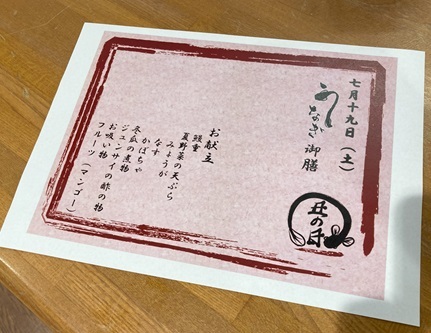 七月十九日（土）
うなぎ御膳
丑の日
お献立
鰻重
夏野菜の天ぷら
なす
みょうが
かぼちゃ
冬瓜の煮物
ジュンサイの酢の物
お吸い物
フルーツ（マンゴー）